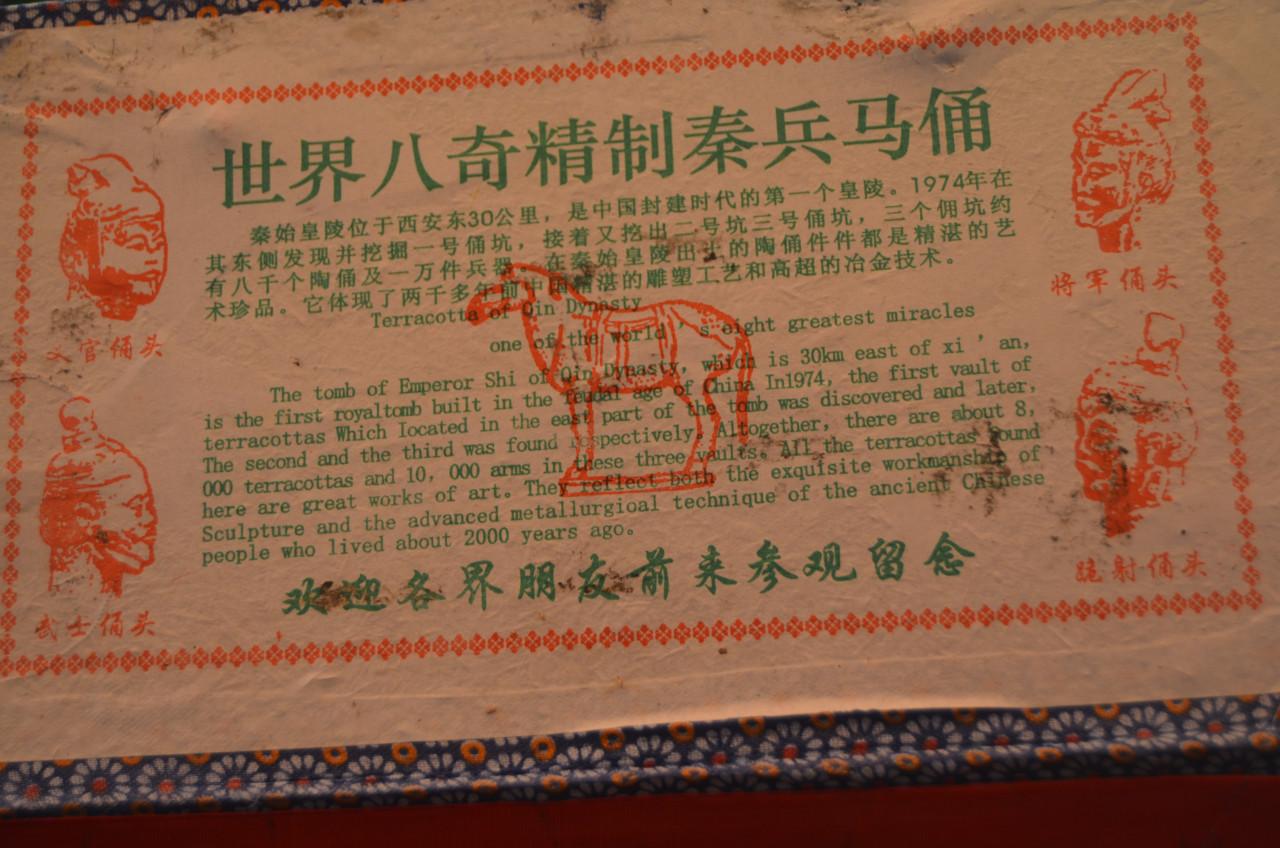 世界八奇精制秦兵马俑
秦始皇陵位于西安东30公里，是中国封建时代的第一个皇陵。1974年在
其东侧发现并挖掘一号俑坑，接着又挖出二号坑三号俑坑，三个佣坑约
有八千个陶俑及一万件兵器。在秦始皇陵出土的陶俑件件都是精湛的艺
术珍品。它体现了两千多年前中国精湛的雕塑工艺和高超的冶金技术。
Terracotta of Qin Dynasty
one of the world ' s eight greatest miracles
The tomb of Emperor Shi of Qin Dynasty, which is 30km east of xi ' an,
is the first royaltomb built in the feudal age of China In1974, the first vault of
terracottas Which located in the east part of the tomb was discovered and later,
The second and the third was found respectively. Altogether, there are about 8,
000 terracottas and 10, 000 arms in these three vaults. All the terracottas found
here are great works of art. They reflect both the exquisite workmanship of
Sculpture and the advanced metallurgioal technique of the ancient Chinese
people who lived about 2000 years ago.
欢迎各界朋友前来参观留念
文官俑头
武士俑头
将军俑头
跪射俑头